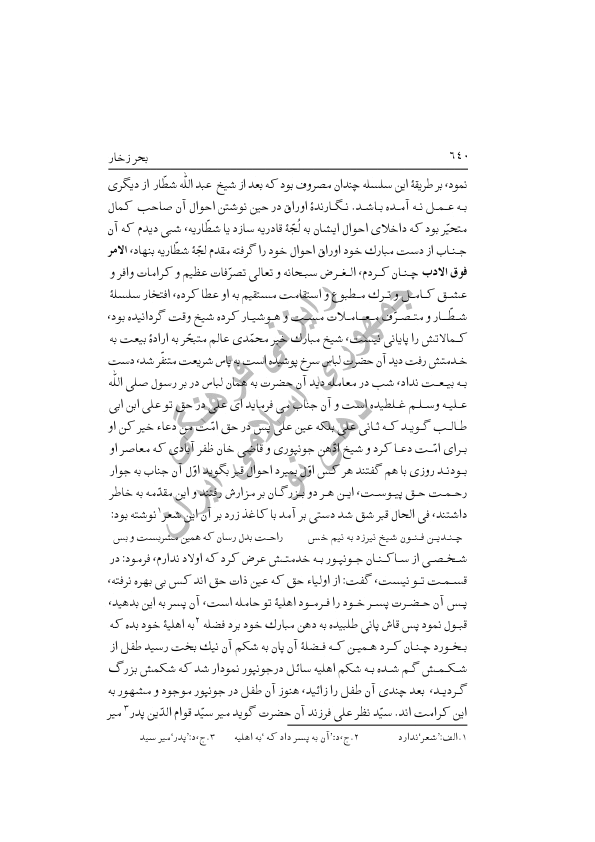 ٦٤٠
بحر زخار
نمود، بر طریقهٔ این سلسله چندان مصروف بود که بعد از شیخ عبد الله شطّار از دیگری
به عمل نه آمده باشد. نگارندهٔ اوراق در حین نوشتن احوال آن صاحب کمال
متحیّر بود که داخلای احوال ایشان به لُجّهٔ قادریه سازد یا شطّاریه، شبی دیدم که آن
جناب از دست مبارك خود اوراق احوال خود را گرفته مقدم لجّهٔ شطّاریه بنهاد، الامر
فوق الادب چنان کردم، الغرض سبحانه و تعالی تصرّفات عظیم و کرامات وافر و
عشق کامل و ترك مطبوع و استقامت مستقیم به او عطا کرده، افتخار سلسلهٔ
شطّار و متصرّف معاملات مست و هوشیار کرده شیخ وقت گردانیده بود،
کمالاتش را پایانی نیست، شیخ مبارك خیر محمّدی عالم متبحّر به ارادهٔ بیعت به
خدمتش رفت دید آن حضرت لباس سرخ پوشیده است به پاس شریعت متنفّر شد، دست
به بیعت نداد، شب در معامله دید آن حضرت به همان لباس در بر رسول صلی الله
علیه وسلم غلطیده است و آن جناب می فرماید ای علی در حق تو علی ابن ابی
طالب گوید که ثانی علی بلکه عین علی پس در حق امّت من دعاء خیر کن او
برای امّت دعا کرد و شیخ ادّهن جونپوری و قاضی خان ظفر آبادی که معاصر او
بودند روزی با هم گفتند هر کس اوّل بمیرد احوال قبر بگوید اوّل آن جناب به جوار
رحمت حق پیوست، این هر دو بزرگان بر مزارش رفتند و این مقدّمه به خاطر
داشتند، فی الحال قبر شق شد دستی بر آمد با کاغذ زرد بر آن این شعر۱ نوشته بود:
چندین فنون شیخ نیرزد به نیم خس راحت بدل رسان که همین مشربست و بس
شخصی از ساکنان جونپور به خدمتش عرض کرد که اولاد ندارم، فرمود: در
قسمت تو نیست، گفت: از اولیاء حق که عین ذات حق اند کس بی بهره نرفته،
پس آن حضرت پسر خود را فرمود اهلیهٔ تو حامله است، آن پسر به این بدهید،
قبول نمود پس قاش پانی طلبیده به دهن مبارك خود برد فضله۲ به اهلیهٔ خود بده که
بخورد چنان کرد همین که فضلهٔ آن پان به شکم آن نیك بخت رسید طفل از
شکمش گم شده به شکم اهلیه سائل درجونپور نمودار شد که شکمش بزرگ
گردید، بعد چندی آن طفل را زائید، هنوز آن طفل در جونپور موجود و مشهور به
این کرامت اند. سیّد نظر علی فرزند آن حضرت گوید میر سیّد قوام الدّین پدر۳ میر
۱.الف:’شعر‘ندارد ۲.ج،د:’آن به پسر داد که ‘به اهلیه ۳.ج،د:’پدر‘میر سید
جمهوری اسلامی ایران
رایزنی فرهنگی
دهلی نو